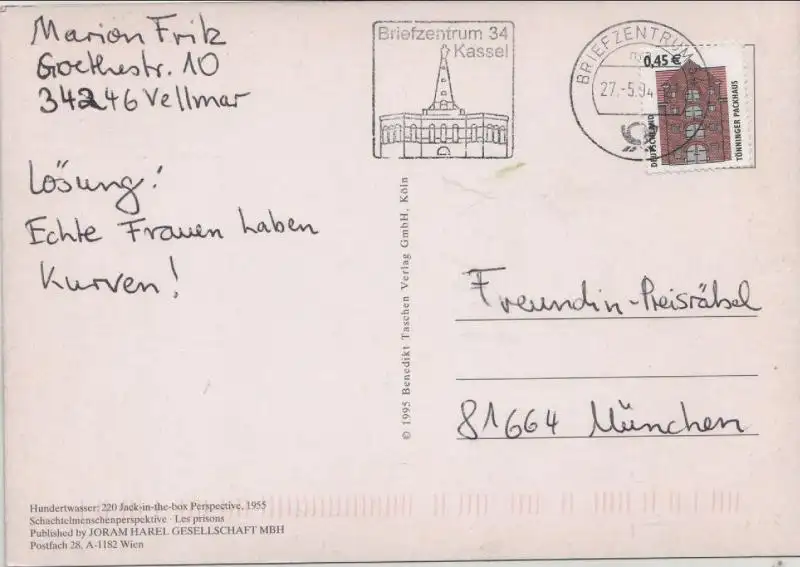 Marion Fritz
Goethestr. 10
34246 Vellmar
Lösung!
Echte Frauen haben
Kurven!
Briefzentrum 34
Kassel
BRIEFZENTRUM
27.-5.
0,45 €
DEUTSCHLAND
TÖNNINGER PACKHAUS
© 1995 Benedikt Taschen Verlag GmbH, Köln
Freundin-Preisräbsel
81664 München
Hundertwasser: 220 Jack-in-the-box Perspective, 1955
Schachtelmenschenperspektive · Les prisons
Published by JORAM HAREL GESELLSCHAFT MBH
Postfach 28, A-1182 Wien